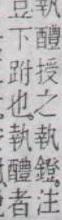 執醴授之執鐙。注
豆下跗也。執醴者